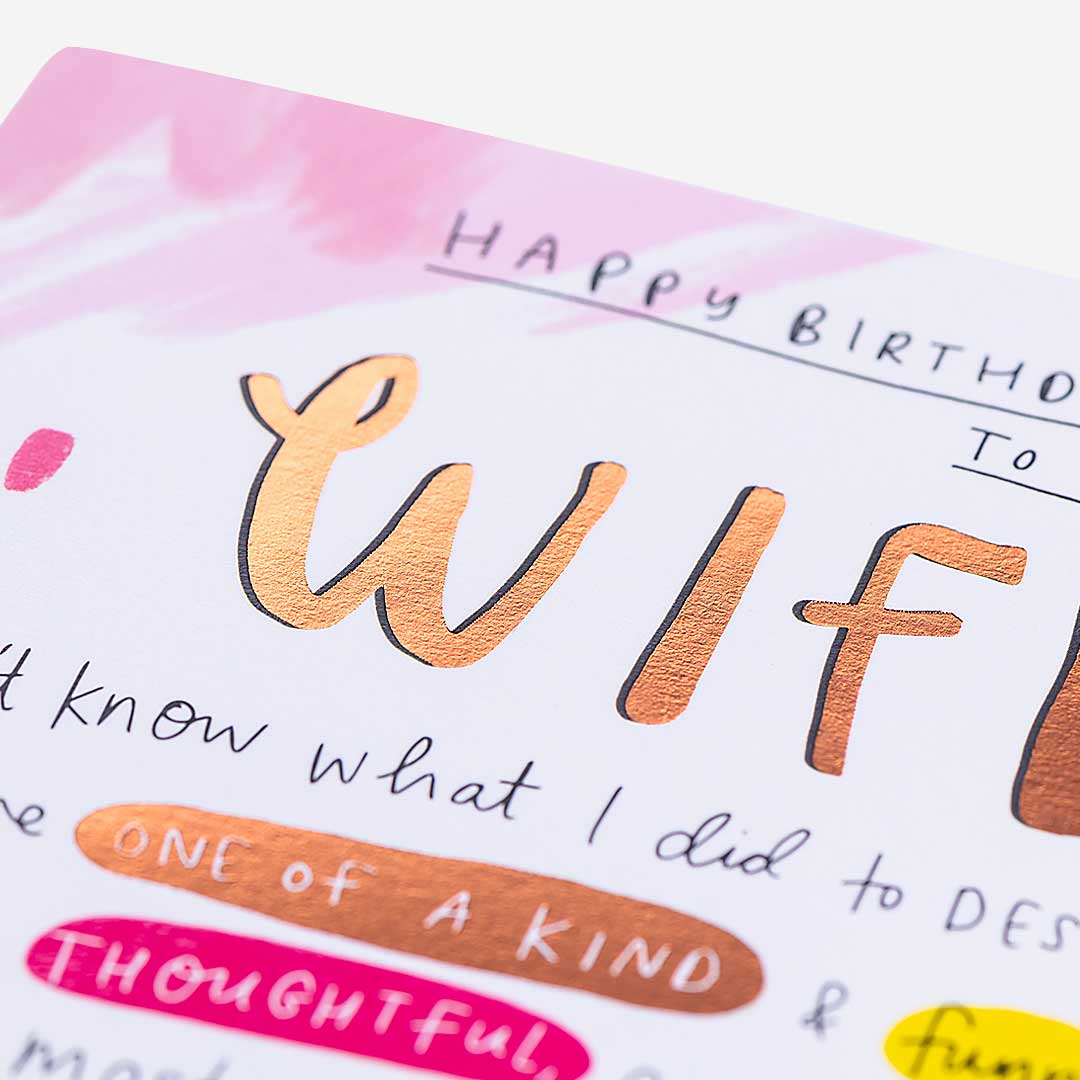 HAPPY BIRTHD
To
WIF
't know what I did to DES
ONE of A KIND
THOUGHTFUL, & funn